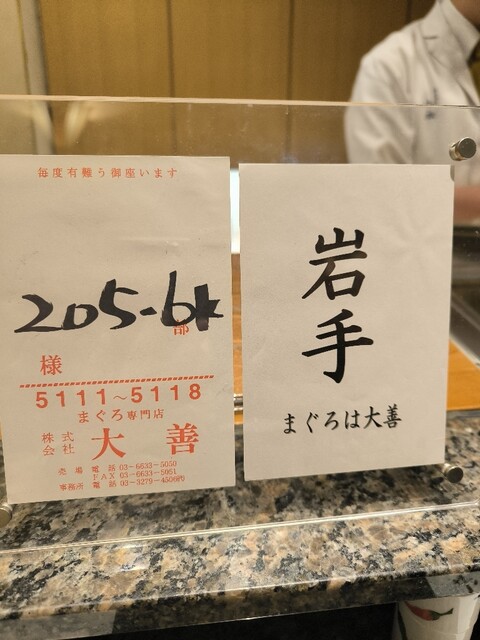 毎度有難う御座います
205.6k
部
様
5111〜5118
まぐろ専門店
株式会社 大善
売場 電話 03-6633-5050
FAX 03-6633-5951
事務所 電話 03-3279-4500代
岩手
まぐろは大善